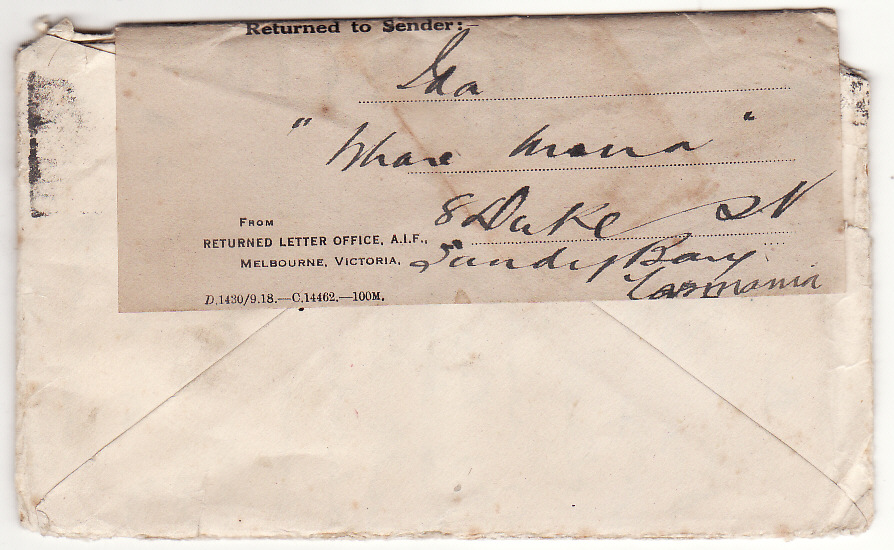 Returned to Sender:—
Ida
"Whare Mona"
8 Duke St
FROM
RETURNED LETTER OFFICE, A.I.F.,
MELBOURNE, VICTORIA.
Sandy Bay
Tasmania
D.1430/9.18.—C.14462.—100M.